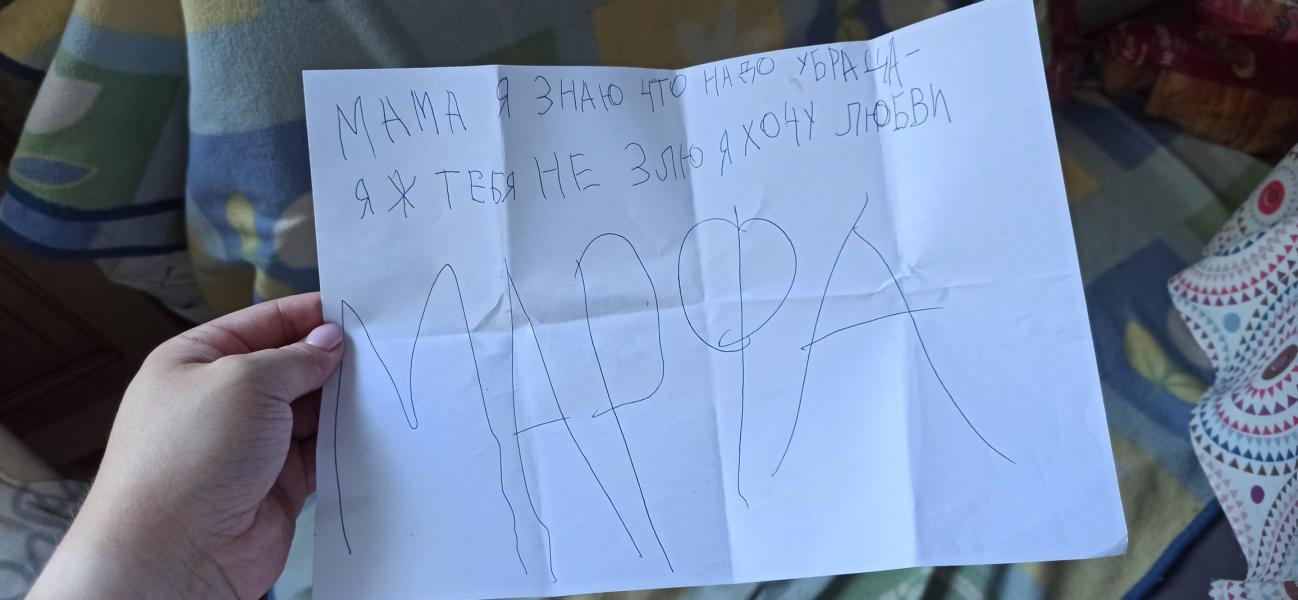 МАМА Я ЗНАЮ ЧТО НАДО УБРАЦА-
Я Ж ТЕБЯ НЕ ЗЛЮ Я ХОЧУ ЛЮБВИ
МАРФА